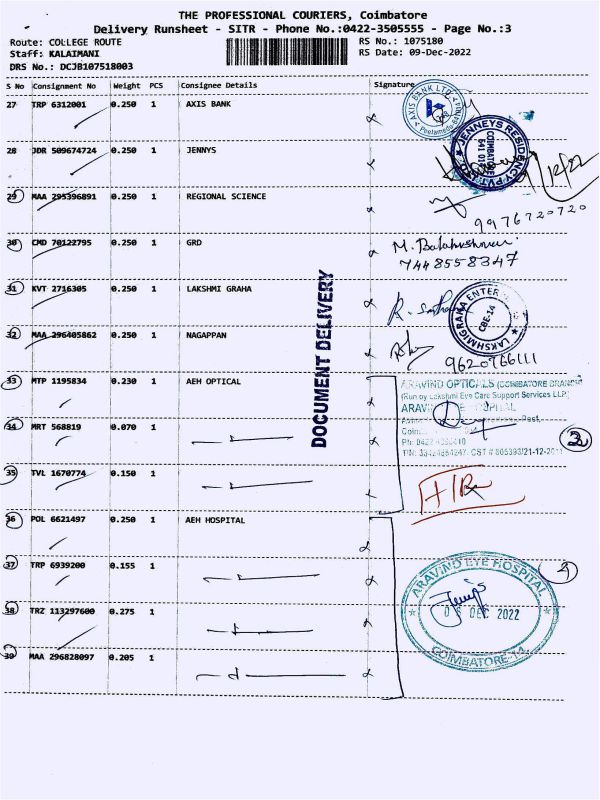 THE PROFESSIONAL COURIERS, Coimbatore
Delivery Runsheet - SITR - Phone No.:0422-3505555 - Page No.:3
Route: COLLEGE ROUTE RS No.: 1075180
Staff: KALAIMANI RS Date: 09-Dec-2022
DRS No.: DCJB107518003
S No Consignment No Weight PCS Consignee Details Signature
27 TRP 6312001 0.250 1 AXIS BANK
AXIS BANK LTD
28 JDR 509674724 0.250 1 JENNYS
JENNEYS RESIDENCY PVT
COIMBATORE
29 MAA 295396891 0.250 1 REGIONAL SCIENCE
9976720720
30 CMD 70122795 0.250 1 GRD
7448558347
31 KVT 2716305 0.250 1 LAKSHMI GRAHA
LAKSHMIGRAHA ENTER
CBE-14
32 MAA 296405862 0.250 1 NAGAPPAN
9620766111
DOCUMENT DELIVERY
33 MTP 1195834 0.230 1 AEH OPTICAL
ARAVIND OPTICALS (COIMBATORE BRANCH)
(Run by Lakshmi Eye Care Support Services LLP)
34 MRT 568819 0.070 1
3
35 TVL 1670774 0.150 1
36 POL 6621497 0.250 1 AEH HOSPITAL
37 TRP 6939200 0.155 1
ARAVIND EYE HOSPITAL
DEC 2022
COIMBATORE-14
38 TRZ 113297600 0.275 1
39 MAA 296828097 0.205 1